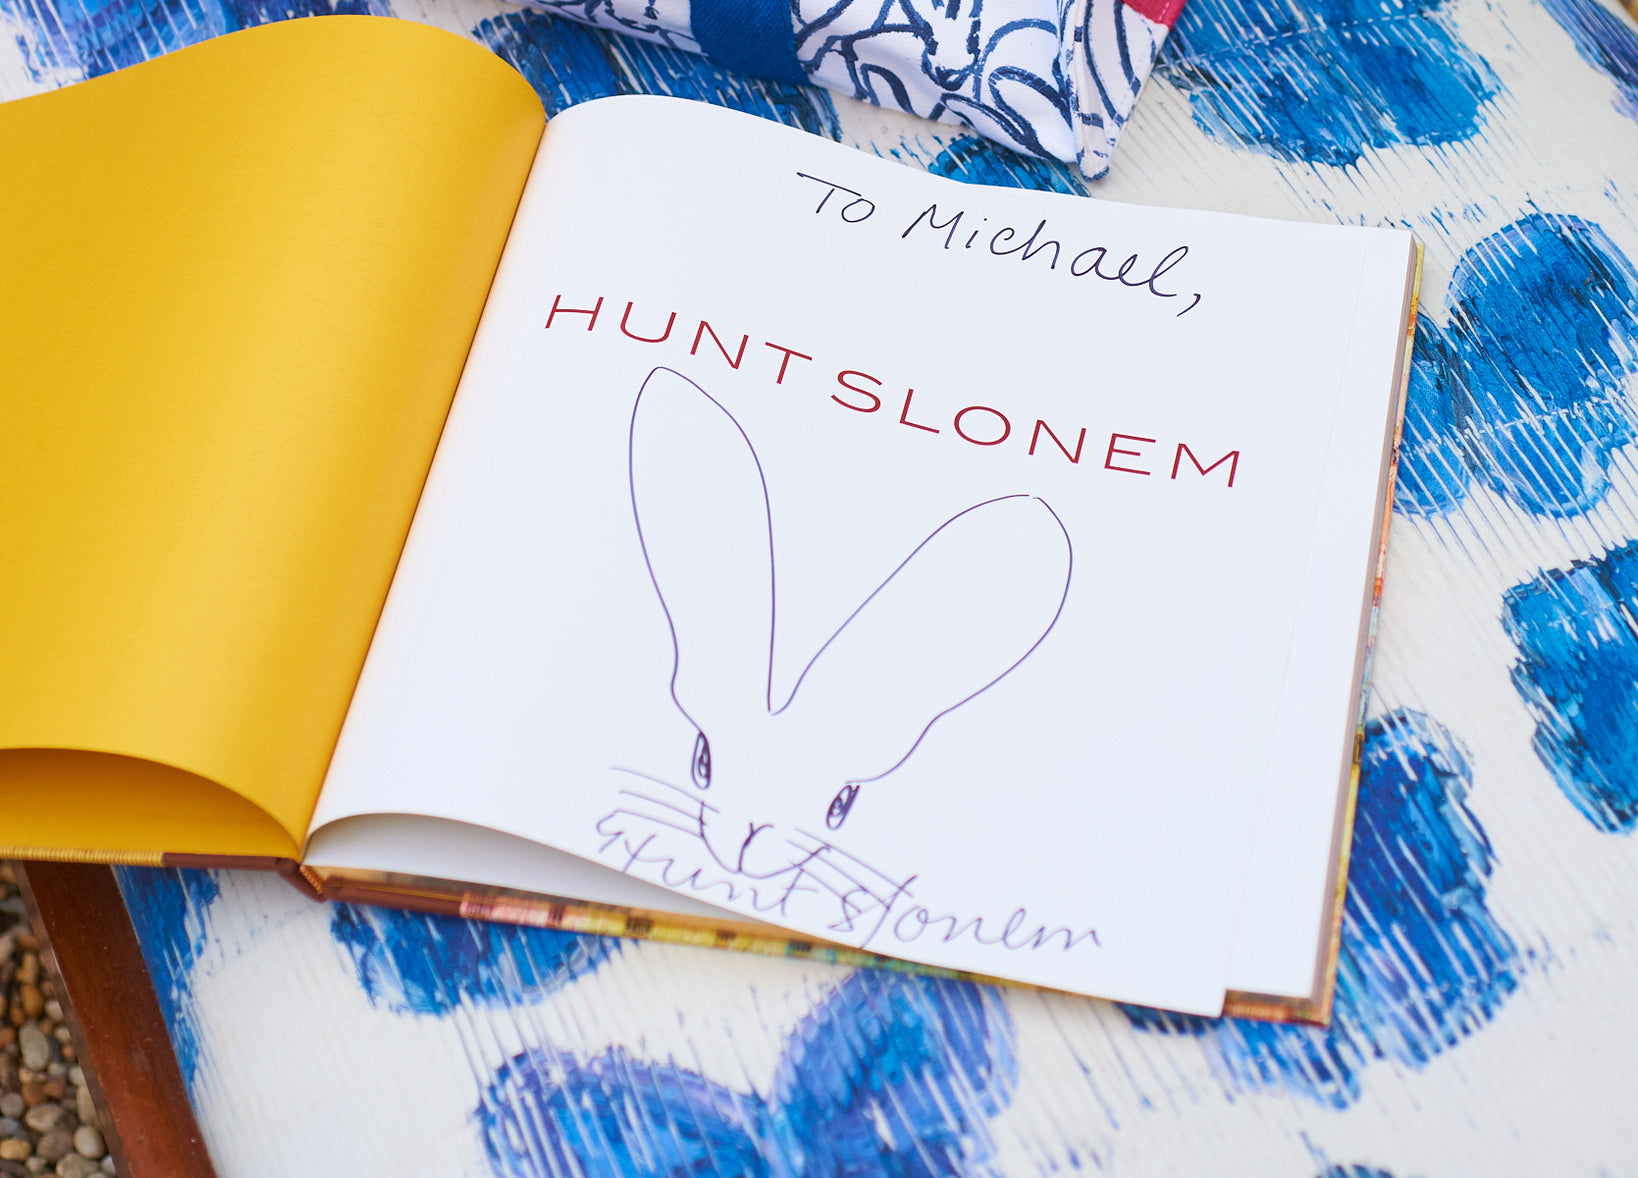 To Michael,
HUNT SLONEM
Hunt Slonem